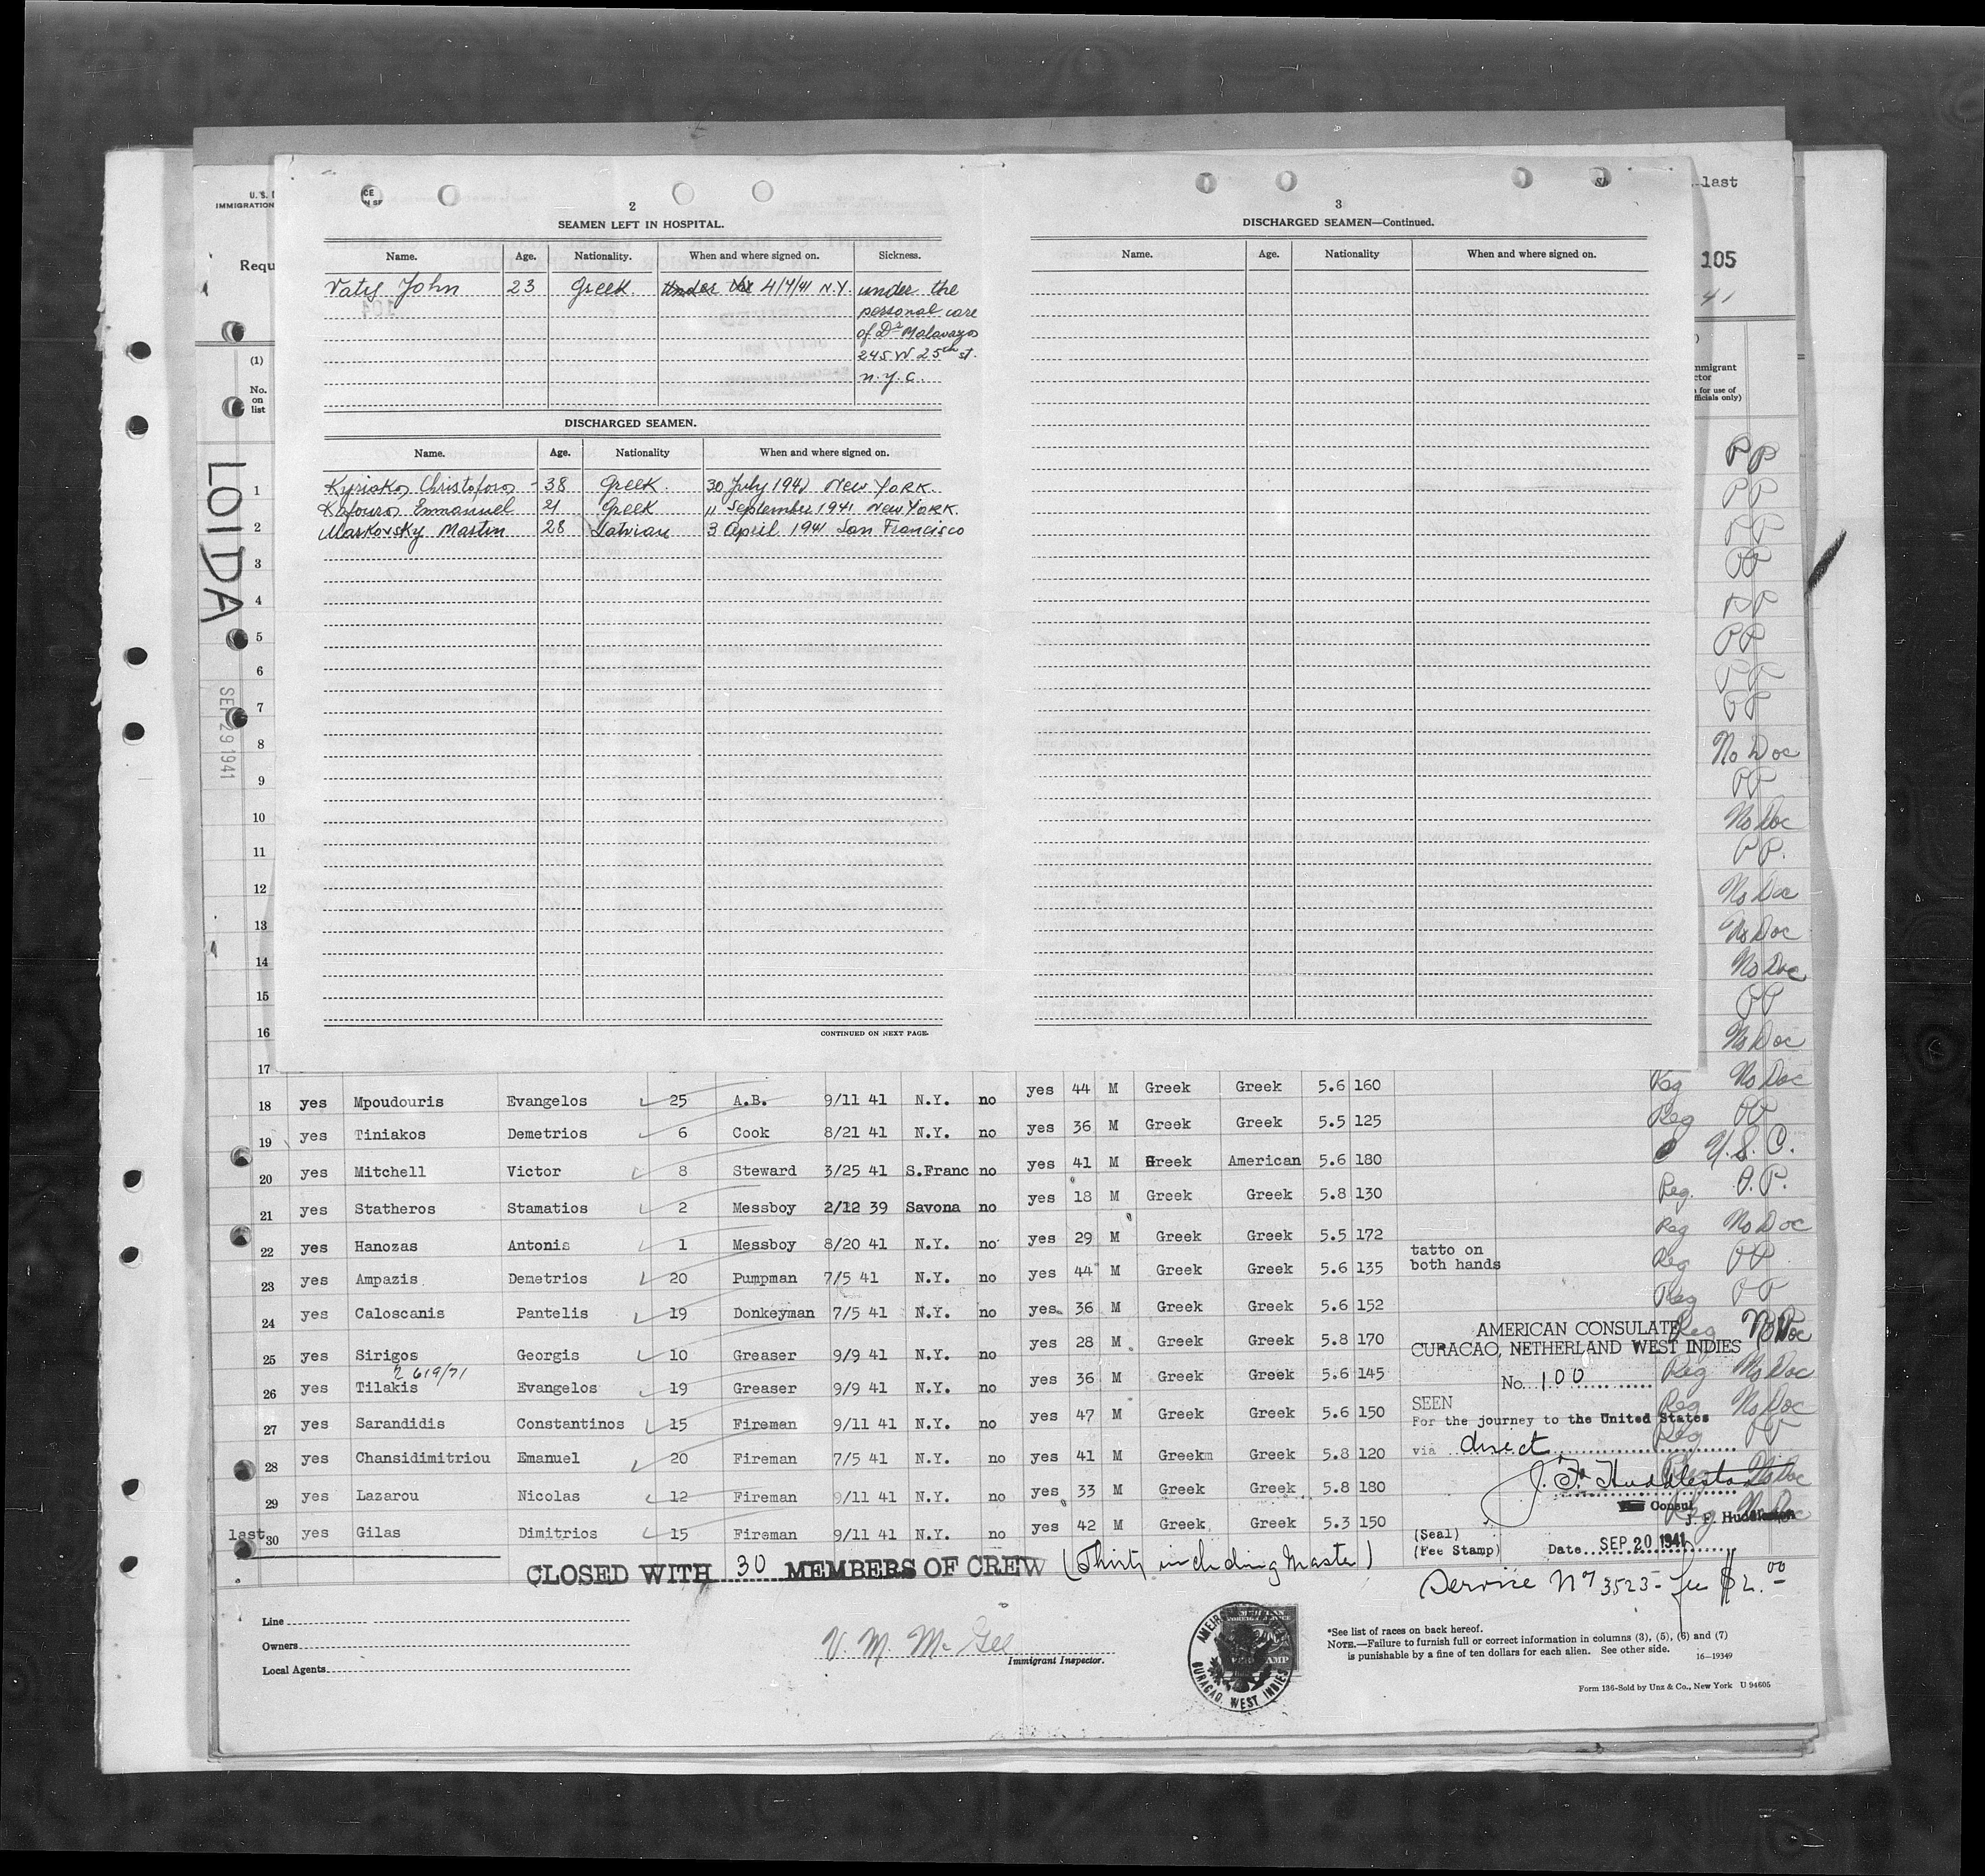 U. S.
IMMIGRATION
Requ
last
105
41
2
SEAMEN LEFT IN HOSPITAL.
Name. Age. Nationality. When and where signed on. Sickness.
Vatis John 23 Greek. 4/4/41 N.Y. under the
personal care
of Dr Malavazos
245 W 25th st.
N.Y.C.
DISCHARGED SEAMEN.
Name. Age. Nationality When and where signed on.
Kyriakos Christoforos - 38 Greek. 30 July 1941 New York.
Kafouros Emmanuel 21 Greek 11 September 1941 New York.
Markovsky Martin 28 Latvian 3 April 1941 San Francisco
CONTINUED ON NEXT PAGE.
3
DISCHARGED SEAMEN—Continued.
Name. Age. Nationality When and where signed on.
(1)
No.
on
list
LOIDA
SEP 29 1941
1
2
3
4
5
6
7
8
9
10
11
12
13
14
15
16
17
mmigrant
ctor
for use of
officials only)
PP
PP
PP
PP
PP
PP
PP
PP
No Doc
PP
No Doc
PP.
No Doc
No Doc
No Doc
PP
No Doc
18 yes Mpoudouris Evangelos 25 A.B. 9/11 41 N.Y. no yes 44 M Greek Greek 5.6 160 Reg No Doc
19 yes Tiniakos Demetrios 6 Cook 8/21 41 N.Y. no yes 36 M Greek Greek 5.5 125 Reg PP
20 yes Mitchell Victor 8 Steward 3/25 41 S.Franc no yes 41 M Greek American 5.6 180 U.S.C.
21 yes Statheros Stamatios 2 Messboy 2/12 39 Savona no yes 18 M Greek Greek 5.8 130 Reg. P.P.
22 yes Hanozas Antonis 1 Messboy 8/20 41 N.Y. no yes 29 M Greek Greek 5.5 172 Reg No Doc
23 yes Ampazis Demetrios 20 Pumpman 7/5 41 N.Y. no yes 44 M Greek Greek 5.6 135 tatto on both hands Reg PP
24 yes Caloscanis Pantelis 19 Donkeyman 7/5 41 N.Y. no yes 36 M Greek Greek 5.6 152 Reg PP
25 yes Sirigos Georgis 10 Greaser 9/9 41 N.Y. no yes 28 M Greek Greek 5.8 170 Reg No Doc
2 619/71
26 yes Tilakis Evangelos 19 Greaser 9/9 41 N.Y. no yes 36 M Greek Greek 5.6 145 Reg No Doc
27 yes Sarandidis Constantinos 15 Fireman 9/11 41 N.Y. no yes 47 M Greek Greek 5.6 150 Reg No Doc
28 yes Chansidimitriou Emanuel 20 Fireman 7/5 41 N.Y. no yes 41 M Greekm Greek 5.8 120 Reg PP
29 yes Lazarou Nicolas 12 Fireman 9/11 41 N.Y. no yes 33 M Greek Greek 5.8 180 No Doc
last 30 yes Gilas Dimitrios 15 Fireman 9/11 41 N.Y. no yes 42 M Greek Greek 5.3 150 Reg No Doc
AMERICAN CONSULATE
CURACAO, NETHERLAND WEST INDIES
No. 100
SEEN
For the journey to the United States
via direct
J. F. Huddleston
Consul
J. F. Huddleston
(Seal)
(Fee Stamp) Date SEP 20 1941
CLOSED WITH 30 MEMBERS OF CREW (Thirty including Master)
Service No 3523 - fee $2.00
Line
Owners
Local Agents
V. M. McGee
Immigrant Inspector.
CURACAO, WEST INDIES
*See list of races on back hereof.
NOTE.—Failure to furnish full or correct information in columns (3), (5), (6) and (7)
is punishable by a fine of ten dollars for each alien. See other side.
16—19349
Form 136-Sold by Unz & Co., New York U 94605